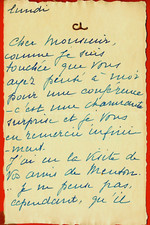 Lundi
Cher Monsieur,
comme je suis
touchée que vous
ayez pensé à moi
pour une conférence
- c'est une charmante
surprise et je vous
en remercie infini
-ment.
J'ai eu la visite de
vos amis de Menton
je ne pense pas,
cependant, qu'il